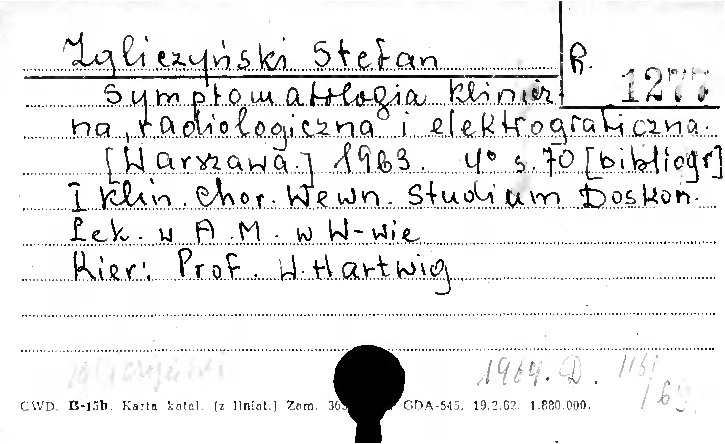 Zgliczyński Stefan
R. 1277
Symptomatologia klinicz
na, radiologiczna i elektrograficzna.
[Warszawa.] 1963. 4° s. 70 [bibliogr]
I Klin. Chor. Wewn. Studium Doskon.
Lek. w A.M. w W-wie
Kier: Prof. W. Hartwig
1964. D.
CWD. B-15b. Karta katal. (z liniat.) Zam. GDA-545. 19.2.62. 1.880.000.